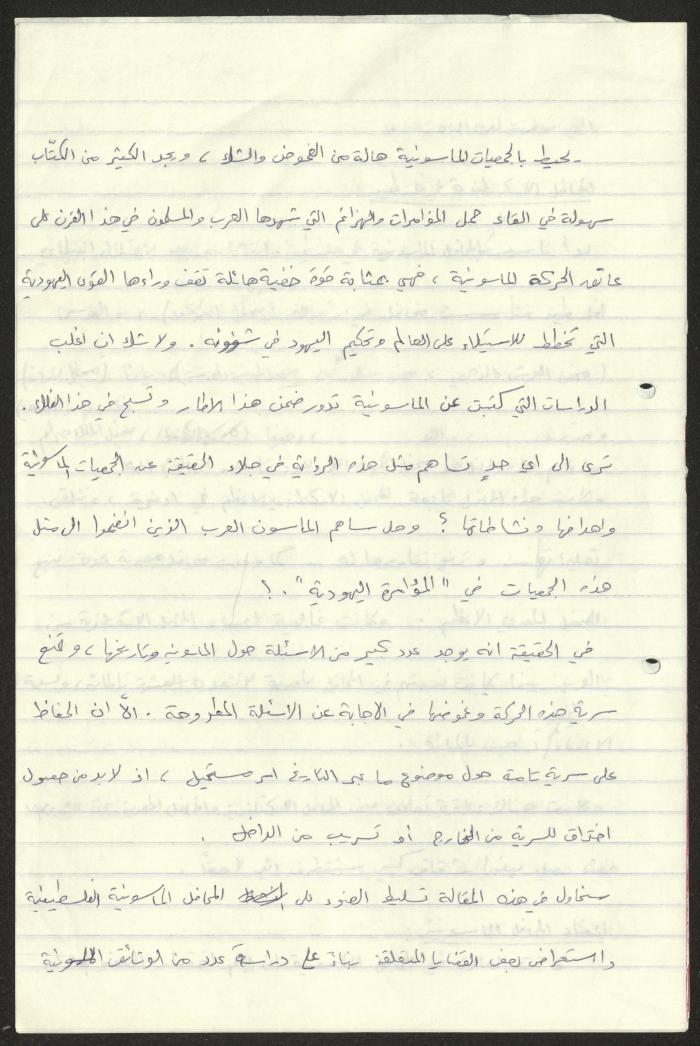 يحيط بالجمعيات الماسونية هالة من الغموض والشك ، ويجد الكثير من الكتّاب
سهولة في القاء حمل المؤامرات والهزائم التي شهدها العرب والمسلمون في هذا القرن على
عاتق الحركة الماسونية ، فهي بمثابة قوة خفية هائلة تقف وراءها القوى اليهودية
التي تخطط للاستيلاء على العالم وتحكيم اليهود في شؤونه . ولا شك ان اغلب
الدراسات التي كتبت عن الماسونية تدور ضمن هذا الاطار وتسبح في هذا الفلك .
ترى الى اي حدٍ تساهم مثل هذه الرؤية في جلاء الحقيقة عن الجمعيات الماسونية
واهدافها ونشاطاتها ؟ وهل ساهم الماسون العرب الذين انضموا الى مثل
هذه الجمعيات في "المؤامرة اليهودية" . !
في الحقيقة انه يوجد عدد كبير من الاسئلة حول الماسونية وتاريخها ، وتمنع
سرية هذه الحركة وغموضها في الاجابة عن الاسئلة المطروحة . الاّ ان الحفاظ
على سرية تامة حول موضوع ما عبر التاريخ امر مستحيل ، اذ لابد من حصول
اختراق للسرية من الخارج أو تسريب من الداخل .
سنحاول في هذه المقالة تسليط الضوء على المحافل الماسونية الفلسطينية
واستعراض بعض القضايا المتعلقة بناءً على دراسة عدد من الوثائق الماسونية